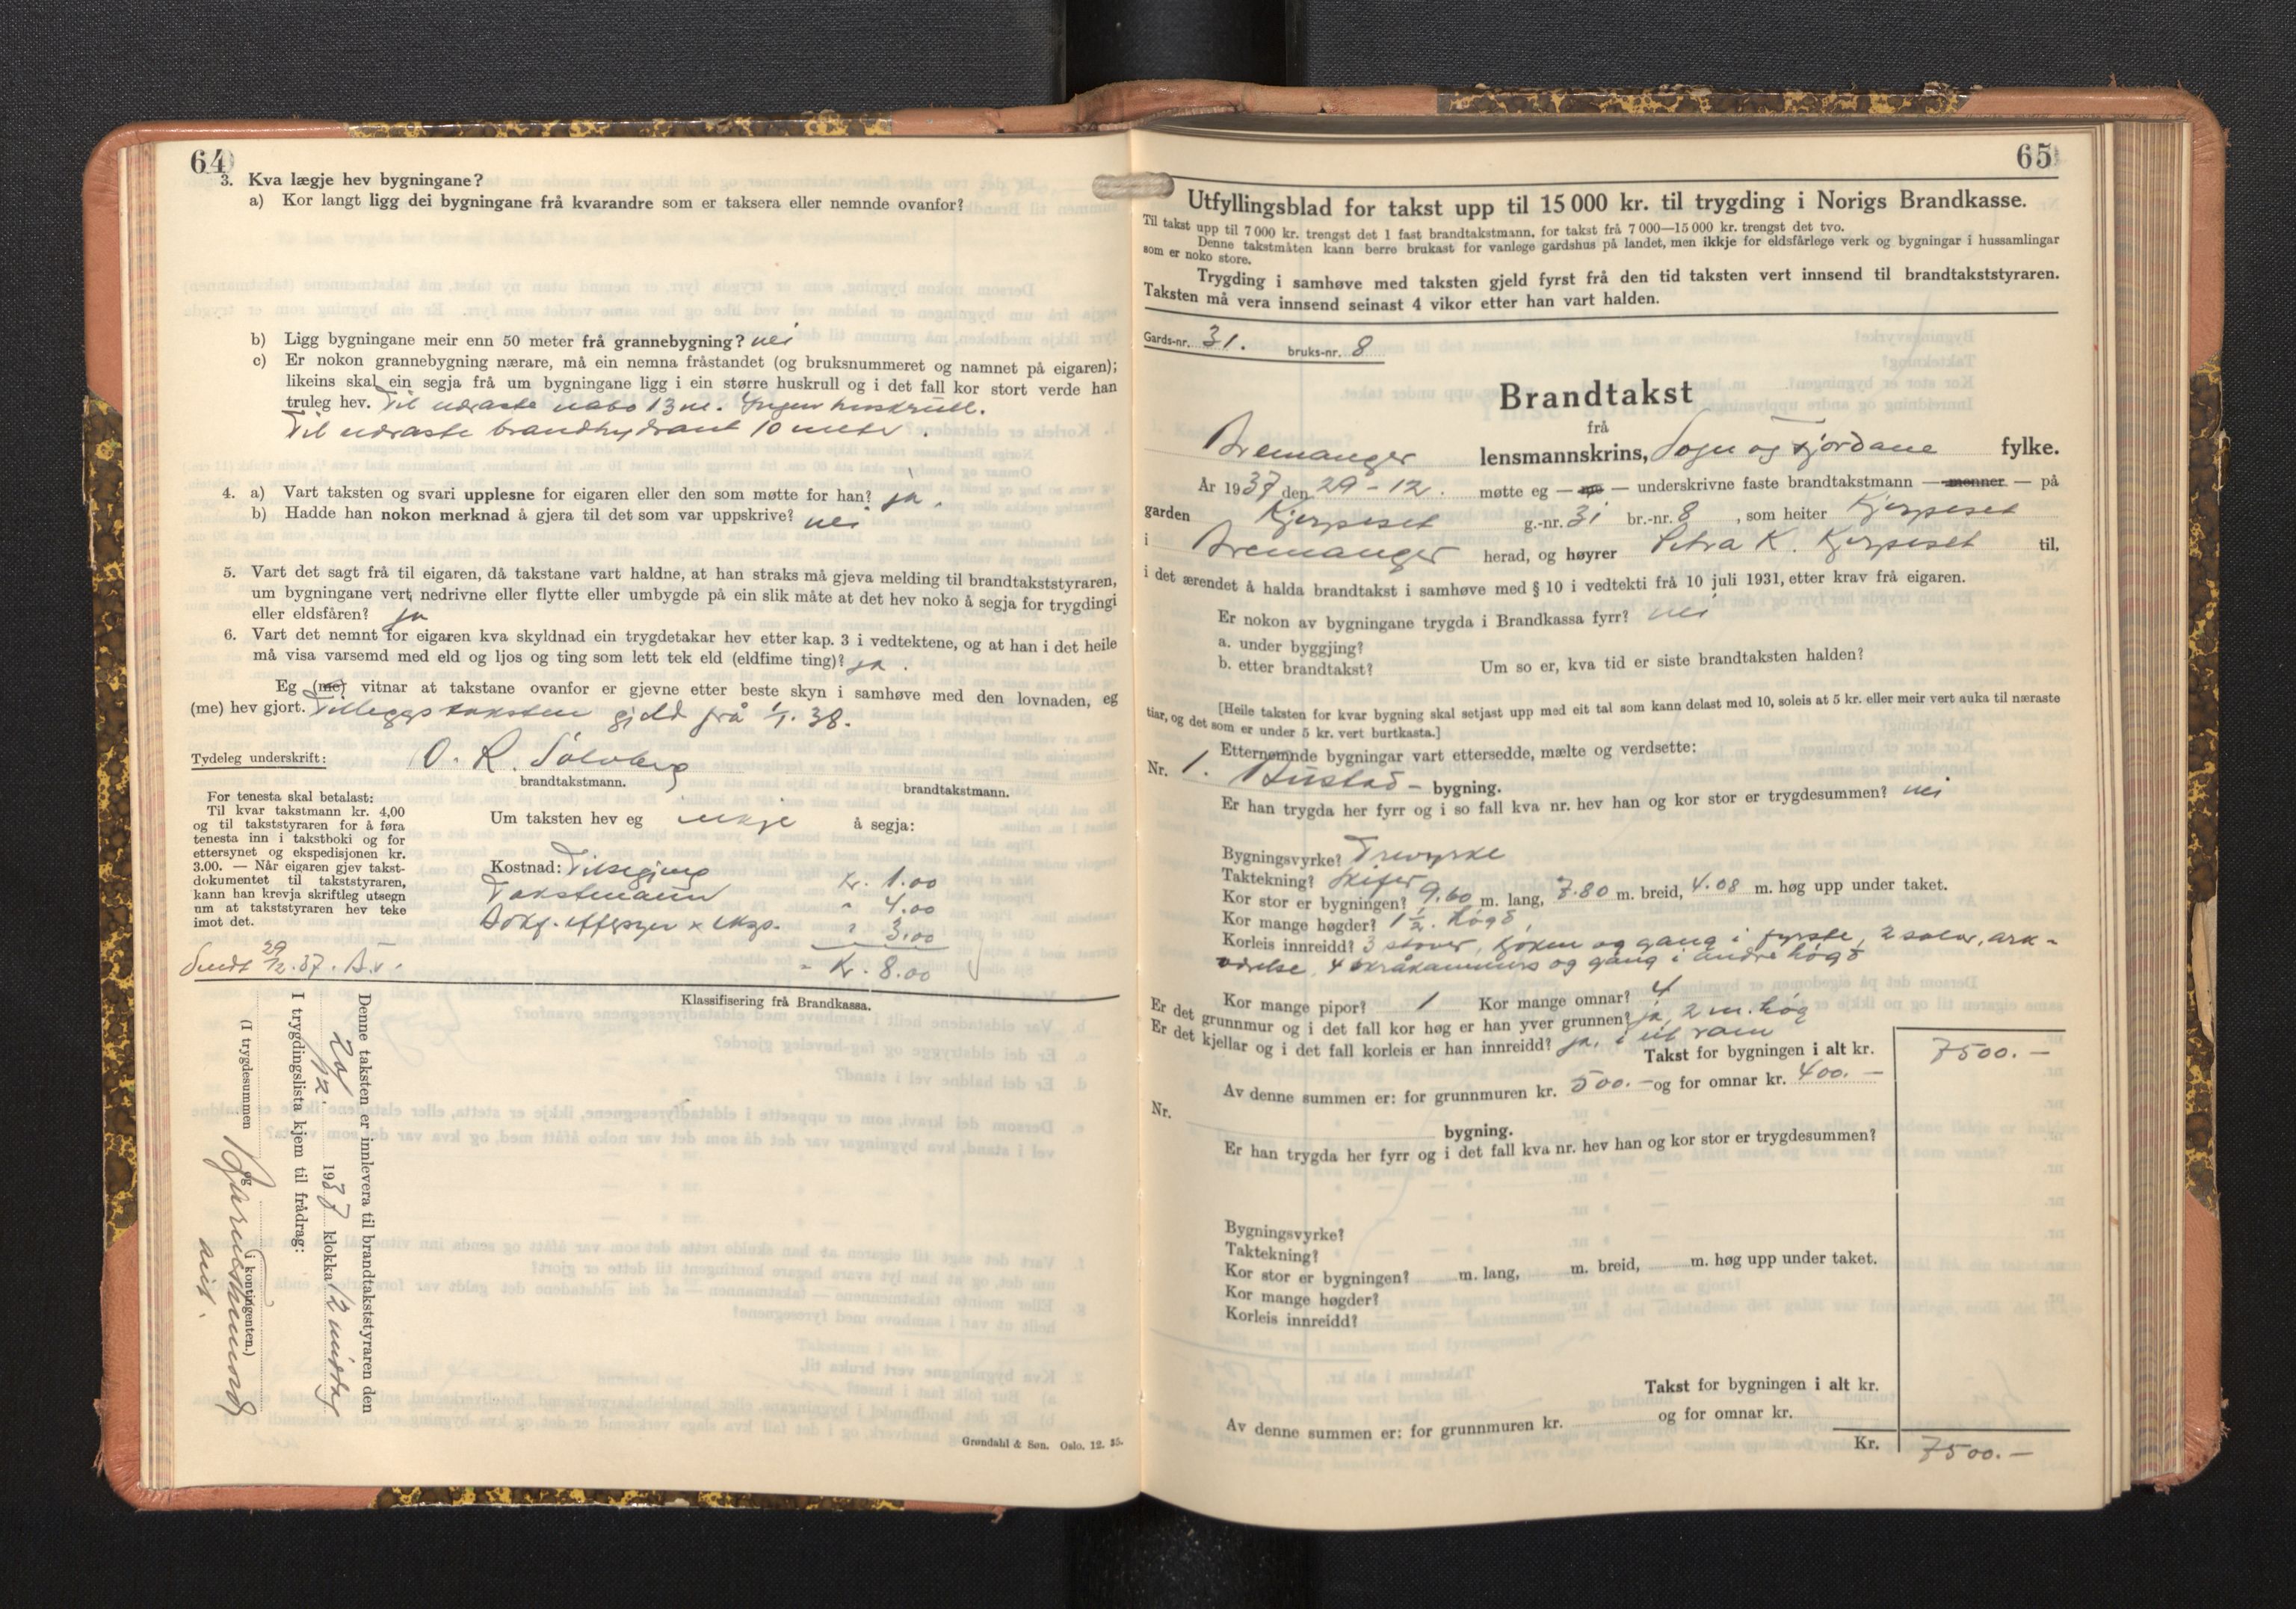 64
3. Kva lægje hev bygningane?
a) Kor langt ligg dei bygningane frå kvarandre som er taksera eller nemnde ovanfor?
b) Ligg bygningane meir enn 50 meter frå grannebygning? nei
c) Er nokon grannebygning nærare, må ein nemna fråstandet (og bruksnummeret og namnet på eigaren);
likeins skal ein segja frå um bygningane ligg i ein større huskrull og i det fall kor stort verde han
truleg hev. Til næraste nabo 13 m. Ingen huskrull.
Til næraste brandhydrant 10 meter.
4. a) Vart taksten og svari upplesne for eigaren eller den som møtte for han? ja.
b) Hadde han nokon merknad å gjera til det som var uppskrive? nei
5. Vart det sagt frå til eigaren, då takstane vart haldne, at han straks må gjeva melding til brandtakststyraren,
um bygningane vert nedrivne eller flytte eller umbygde på ein slik måte at det hev noko å segja for trygdingi
eller eldsfåren? ja
6. Vart det nemnt for eigaren kva skyldnad ein trygdetakar hev etter kap. 3 i vedtektene, og at han i det heile
må visa varsemd med eld og ljos og ting som lett tek eld (eldfime ting)? ja.
Eg (me) vitnar at takstane ovanfor er gjevne etter beste skyn i samhøve med den lovnaden, eg
(me) hev gjort. Tilleggstaksten gjeld frå 1/1. 38.
Tydeleg underskrift: O. R. Sølvberg
brandtakstmann. brandtakstmann.
For tenesta skal betalast:
Til kvar takstmann kr. 4,00
og til takststyraren for å føra
tenesta inn i takstboki og for
ettersynet og ekspedisjonen kr.
3.00. — Når eigaren gjev takst-
dokumentet til takststyraren,
kann han krevja skriftleg utsegn
um at takststyraren hev teke
imot det.
Um taksten hev eg ikkje å segja:
Kostnad: Tilsegjing kr. 1.00
Takstmann " 4.00
" 3.00
Kr. 8.00
Sendt 29/12.37.
Klassifisering frå Brandkassa.
Denne taksten er innlevera til brandtakststyraren den
29/12. 1937 klokka 12 middag
I trygdingslista kjem til frådrag:
(I trygdesummen og i kontingenten.)
Grøndahl & Søn. Oslo. 12. 35.
65
Utfyllingsblad for takst upp til 15 000 kr. til trygding i Norigs Brandkasse.
Til takst upp til 7 000 kr. trengst det 1 fast brandtakstmann, for takst frå 7 000—15 000 kr. trengst det tvo.
Denne takstmåten kann berre brukast for vanlege gardshus på landet, men ikkje for eldsfårlege verk og bygningar i hussamlingar
som er noko store.
Trygding i samhøve med taksten gjeld fyrst frå den tid taksten vert innsend til brandtakststyraren.
Taksten må vera innsend seinast 4 vikor etter han vart halden.
Gards-nr. 31. bruks-nr. 8
Brandtakst
frå
Bremanger lensmannskrins, Sogn og Fjordane fylke.
År 1937 den 29-12. møtte eg — me — underskrivne faste brandtakstmann — menner — på
garden Kjerpeset g.-nr. 31 br.-nr. 8, som heiter Kjerpeset
i Bremanger herad, og høyrer Petra K. Kjerpeset til.
i det ærendet å halda brandtakst i samhøve med § 10 i vedtekti frå 10 juli 1931, etter krav frå eigaren.
Er nokon av bygningane trygda i Brandkassa fyrr? nei
a. under byggjing?
b. etter brandtakst? Um so er, kva tid er siste brandtaksten halden?
[Heile taksten for kvar bygning skal setjast upp med eit tal som kann delast med 10, soleis at 5 kr. eller meir vert auka til næraste
tiar, og det som er under 5 kr. vert burtkasta.]
Etternemnde bygningar vart ettersedde, mælte og verdsette:
Nr. 1. Bustad - bygning.
Er han trygda her fyrr og i so fall kva nr. hev han og kor stor er trygdesummen? nei
Bygningsvyrke? Trevyrke
Taktekning? Skifer
Kor stor er bygningen? 9.60 m. lang, 7.80 m. breid, 4.08 m. høg upp under taket.
Kor mange høgder? 1 1/2. høgd
Korleis innreidd? 3 stover, kjøken og gang i fyrste, 2 salar, ark-
værelse, 4 skråkammers og gang i andre høgd
Kor mange pipor? 1 Kor mange omnar? 4
Er det grunnmur og i det fall kor høg er han yver grunnen? ja, 2 m. høg
Er det kjellar og i det fall korleis er han innreidd? ja, i eit rom
Takst for bygningen i alt kr. 7500.—
Av denne summen er: for grunnmuren kr. 500.— og for omnar kr. 400.—
Nr. bygning.
Er han trygda her fyrr og i det fall kva nr. hev han og kor stor er trygdesummen?
Bygningsvyrke?
Taktekning?
Kor stor er bygningen? m. lang, m. breid, m. høg upp under taket.
Kor mange høgder?
Korleis innreidd?
Takst for bygningen i alt kr.
Av denne summen er: for grunnmuren kr. og for omnar kr.
Kr. 7500.—